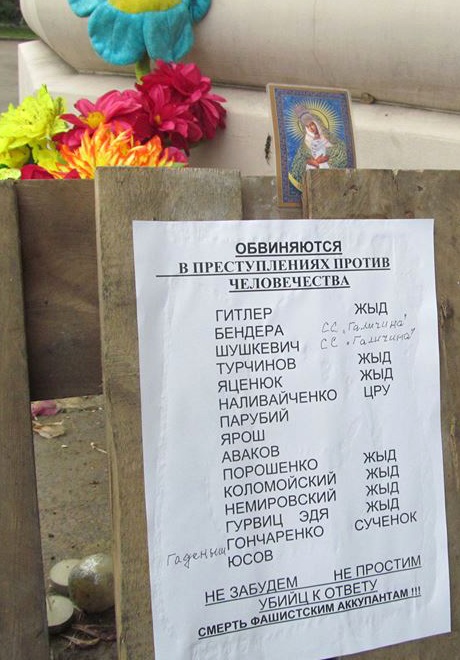 ОБВИНЯЮТСЯ
В ПРЕСТУПЛЕНИЯХ ПРОТИВ
ЧЕЛОВЕЧЕСТВА
ГИТЛЕР ЖЫД
БЕНДЕРА СС „Галичина"
ШУШКЕВИЧ СС „Галичина"
ТУРЧИНОВ ЖЫД
ЯЦЕНЮК ЖЫД
НАЛИВАЙЧЕНКО ЦРУ
ПАРУБИЙ
ЯРОШ
АВАКОВ
ПОРОШЕНКО ЖЫД
КОЛОМОЙСКИЙ ЖЫД
НЕМИРОВСКИЙ ЖЫД
ГУРВИЦ ЭДЯ ЖЫД
ГОНЧАРЕНКО СУЧЕНОК
Гаденыш ЮСОВ
НЕ ЗАБУДЕМ НЕ ПРОСТИМ
УБИЙЦ К ОТВЕТУ
СМЕРТЬ ФАШИСТСКИМ АККУПАНТАМ !!!